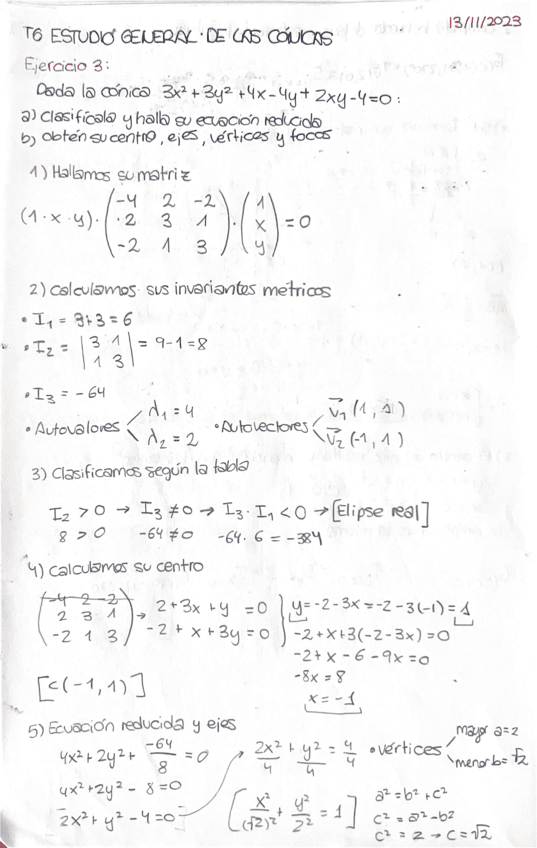 13/11/2023
T6 ESTUDIO GENERAL DE LAS CÓNICAS
Ejercicio 3:
Dada la cónica 3x²+3y²+4x-4y+2xy-4=0:
a) clasifícala y halla su ecuación reducida
b) obtén su centro, ejes, vértices y focos
1) Hallamos su matriz
(1 · x · y) · (-4 2 -2) · (1)
(2 3 1) (x) = 0
(-2 1 3) (y)
2) Calculamos sus invariantes métricos
• I₁ = 3+3 = 6
• I₂ = |3 1| = 9-1=8
|1 3|
• I₃ = -64
• Autovalores λ₁ = 4 • Autovectores v₁ (1, 1)
λ₂ = 2 v₂ (-1, 1)
3) Clasificamos según la tabla
I₂ > 0 → I₃ ≠ 0 → I₃ · I₁ < 0 → [Elipse real]
8 > 0 -64 ≠ 0 -64 · 6 = -384
4) Calculamos su centro
(-4 2 -2)
(2 3 1) → 2+3x+y = 0 } y = -2-3x = -2-3(-1) = 1
(-2 1 3) -2+x+3y = 0 } -2+x+3(-2-3x) = 0
-2+x-6-9x=0
-8x=8
x=-1
[C(-1,1)]
5) Ecuación reducida y ejes
4x²+2y²+ -64/8 = 0
4x²+2y²-8=0
2x²+y²-4=0
2x²/4 + y²/4 = 4/4
[x²/(√2)² + y²/2² = 1]
• vértices mayor a=2
menor b=√2
a²=b²+c²
c²=a²-b²
c²=2 → c=√2